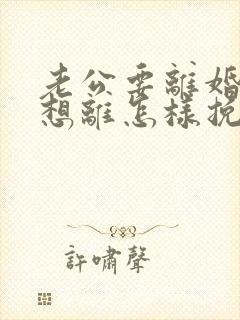 老公要離婚
想離怎樣挽
許嘯聲